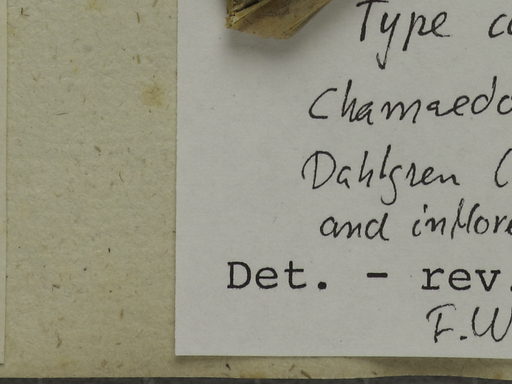 Type c
Chamaedo
Dahlgren (
and in
Det. - rev.
F.W